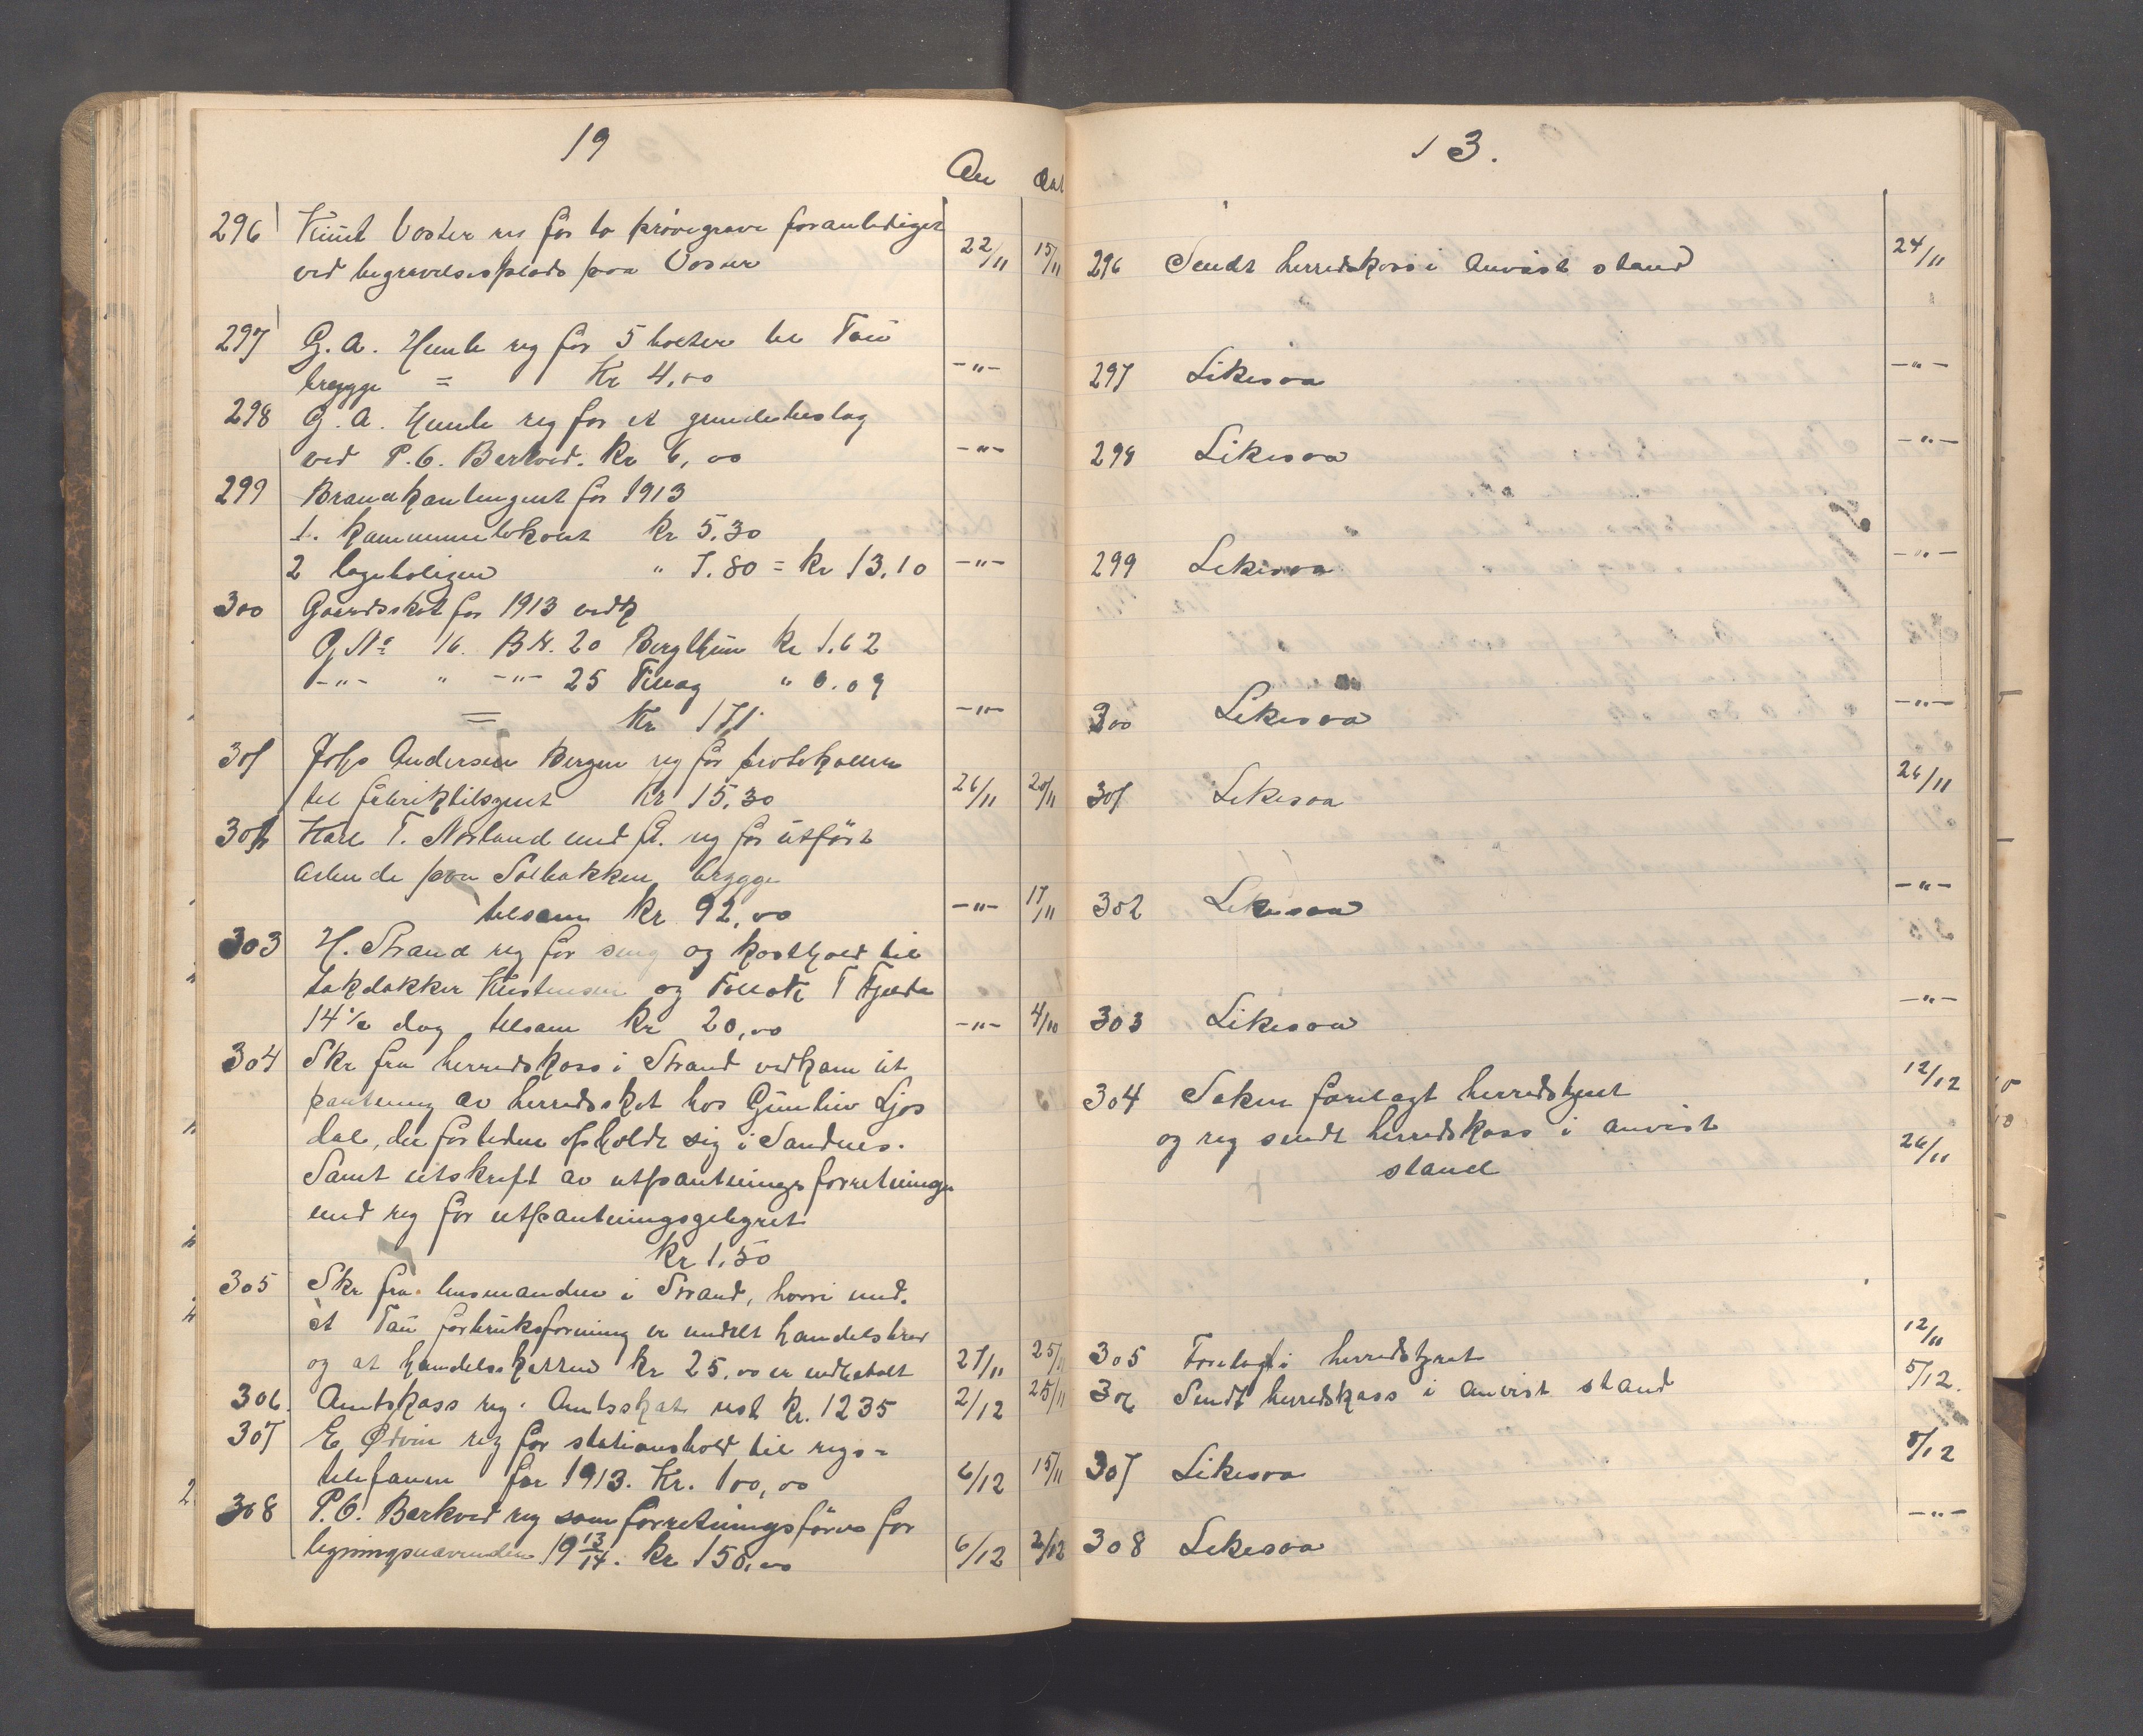 19
An Dat
296 Knut Voster reg for to prøvegrave foranlediget
ved begravelsesplads paa Voster 22/11 15/11
297 G. A. Humle reg for 5 bolter til Tau
brygge = Kr 4,00 -"-
298 G. A. Humle reg for et grindebeslag
ved P. C. Barkved. Kr 6,00 -"-
299 Brandkontingent for 1913
1. kommunelokalet kr 5.30
2 lægeboligen " 7.80 = kr 13.10 -"-
300 Gaardsskat for 1913 vedk
G No 16. B N. 20 Berglyun kr 1.62
-"- " -"- 25 Tillæg " 0.09
= Kr 1 71 -"-
301 Johs Andersen Bergen reg for protokoller
til fabriktilsynet kr 15,30 26/11 20/11
302 Karl T. Norland med fl. reg for utført
arbeide paa Solbakken brygge
tilsam kr 92,00 -"- 17/11
303 H. Strand reg for seng og kosthold til
takdækker Kristensen og T Fjelde
14 1/2 dag tilsam kr 20,00 -"- 4/10
304 Skr fra herredskass i Strand vedkom ut
pantning av herredsskat hos Gunliv Ljos
dal, der for tiden opholdt sig i Sandnes.
Samt utskrift av utpantningsforretningen
med reg for utpantningsgebyret
kr 1,50
305 Skr fra lensmanden i Strand, hvori med.
at Tau forbruksforening er meddelt handelsbrev
og at handelsskatten kr 25,00 er indbetalt 27/11 25/11
306. Amtskass reg. Amtsskat rest kr. 1235 2/12 25/11
307 E. Ødvin reg for stationshold til rigs=
telefonen for 1913. Kr. 100,00 6/12 15/11
308 P. C. Barkved reg som forretningsfører for
ligningsnævnden 1913/14. kr 150,00 6/12 2/12
13.
296 Sendt herredskass i anvist stand 24/11
297 Likesaa -"-
298 Likesaa -"-
299 Likesaa -"-
300 Likesaa -"-
301 Likesaa 26/11
302 Likesaa -"-
303 Likesaa -"-
304 Saken forelagt herredstyret 12/12
og reg sendt herredskass i anvist 26/11
stand
305 Forelagt i herredstyret 12/11
306 Sendt herredskass i anvist stand 5/12.
307 Likesaa 8/12
308 Likesaa -"-